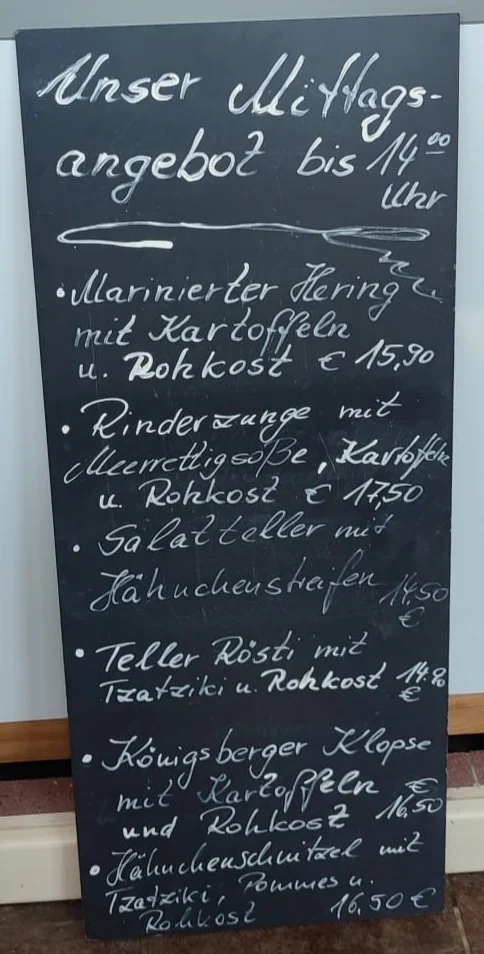 Unser Mittags-
angebot bis 14⁰⁰
Uhr
• Marinierter Hering
mit Kartoffeln
u. Rohkost € 15,90
• Rinderzunge mit
Meerrettigsoße, Kartoffeln
u. Rohkost € 17,50
• Salatteller mit
Hähnchenstreifen 14,50
€
• Teller Rösti mit
Tzatziki u. Rohkost 14.90
€
• Königsberger Klopse
mit Kartoffeln €
und Rohkost 16,50
• Hähnchenschnitzel mit
Tzatziki, Pommes u.
Rohkost 16,50 €